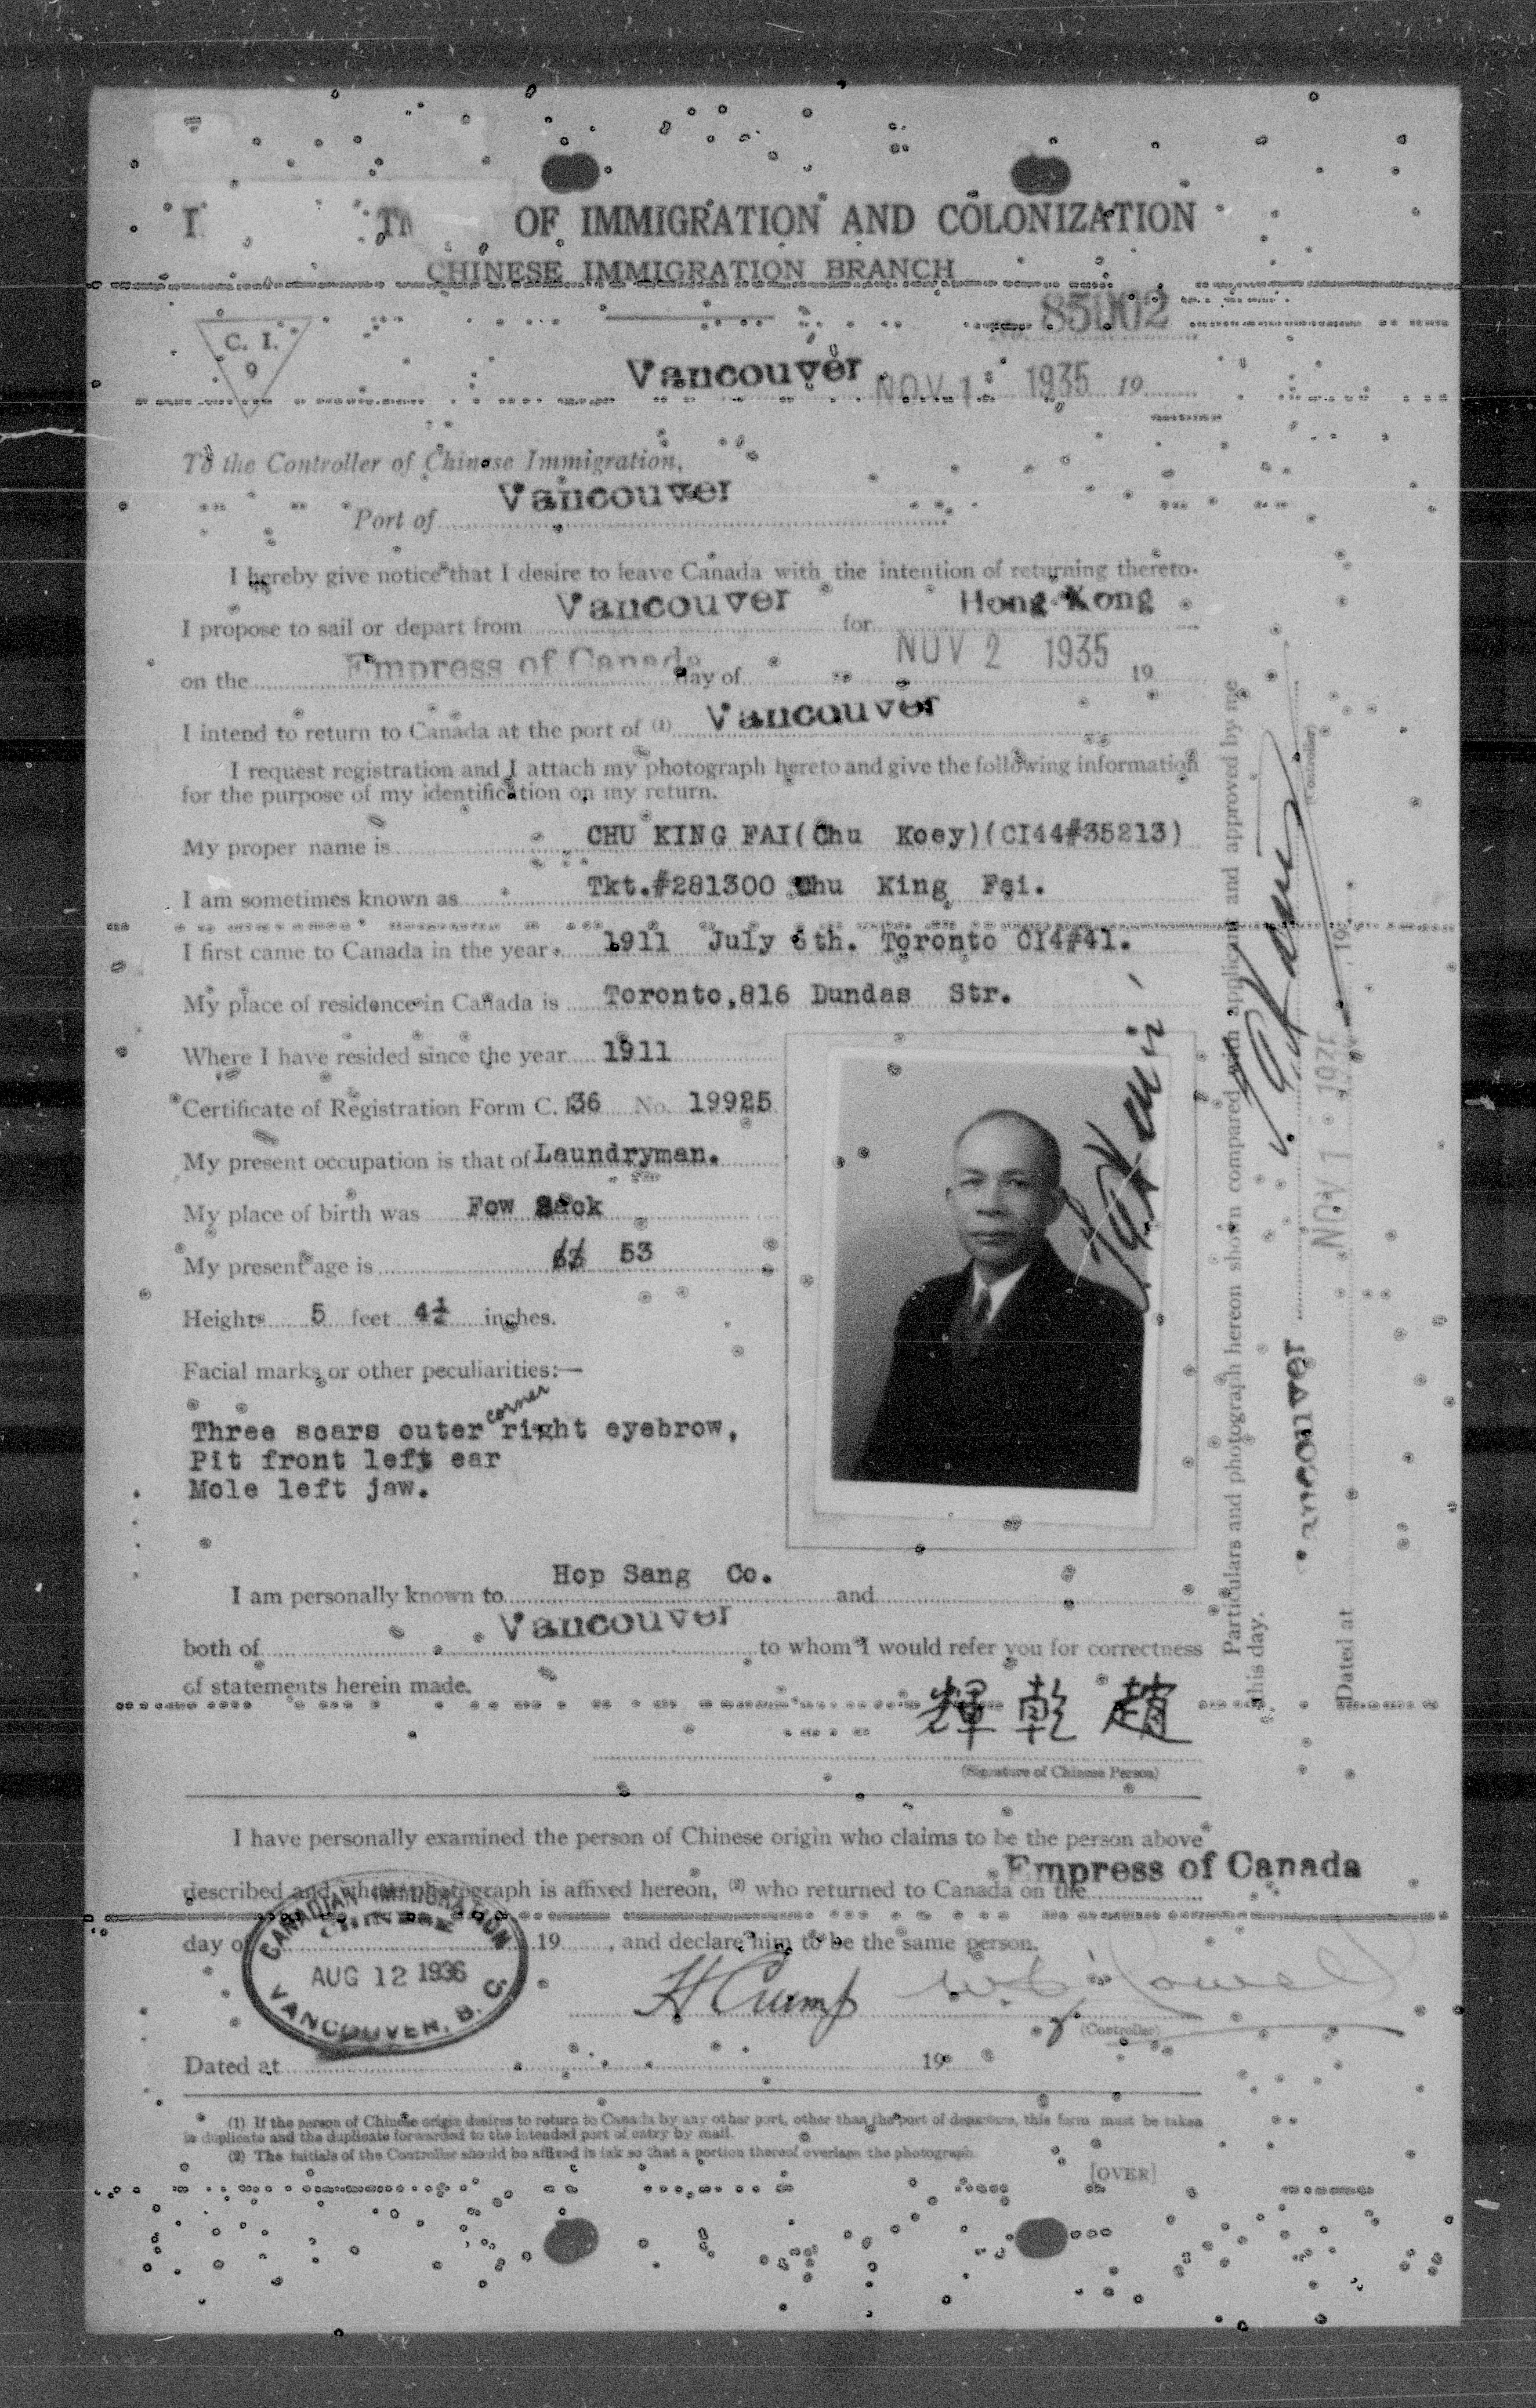 OF IMMIGRATION AND COLONIZATION
CHINESE IMMIGRATION BRANCH
C. I.
9
No. 85002
Vancouver NOV 1 1935 19
To the Controller of Chinese Immigration,
Port of Vancouver
I hereby give notice that I desire to leave Canada with the intention of returning thereto.
I propose to sail or depart from Vancouver for Hong Kong
on the Empress of Canada day of NOV 2 1935 19
I intend to return to Canada at the port of (1) Vancouver
I request registration and I attach my photograph hereto and give the following information
for the purpose of my identification on my return.
My proper name is CHU KING FAI(Chu Koey)(CI44#35213)
I am sometimes known as Tkt.#281300 Chu King Fai.
I first came to Canada in the year 1911 July 6th. Toronto CI4#41.
My place of residence in Canada is Toronto,816 Dundas Str.
Where I have resided since the year 1911
Certificate of Registration Form C. I. 36 No. 19925
My present occupation is that of Laundryman.
My place of birth was Fow Sack
My present age is 53
Height 5 feet 4½ inches.
Facial marks or other peculiarities:—
corner
Three scars outer right eyebrow,
Pit front left ear
Mole left jaw.
I am personally known to Hop Sang Co. and
both of Vancouver to whom I would refer you for correctness
of statements herein made.
輝乾趙
(Signature of Chinese Person)
I have personally examined the person of Chinese origin who claims to be the person above
described and whose photograph is affixed hereon, (2) who returned to Canada on the Empress of Canada
day of 19 , and declare him to be the same person.
CANADIAN IMMIGRATION
AUG 12 1936
VANCOUVER, B. C.
H Crump
(Controller)
Dated at 19
(1) If the person of Chinese origin desires to return to Canada by any other port, other than the port of departure, this form must be taken
in duplicate and the duplicate forwarded to the intended port of entry by mail.
(2) The initials of the Controller should be affixed in ink so that a portion thereof overlaps the photograph.
[OVER]
Particulars and photograph hereon shown compared with applicant and approved by me
this day.
Vancouver
(Controller)
Dated at NOV 1 19